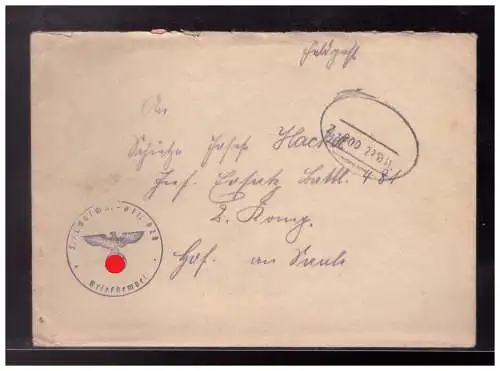 Feldpost
An
Schütze Josef Hacker
Inf. Ersatz Battl. 481
2. Komp.
Hof. an Saale
Briefstempel